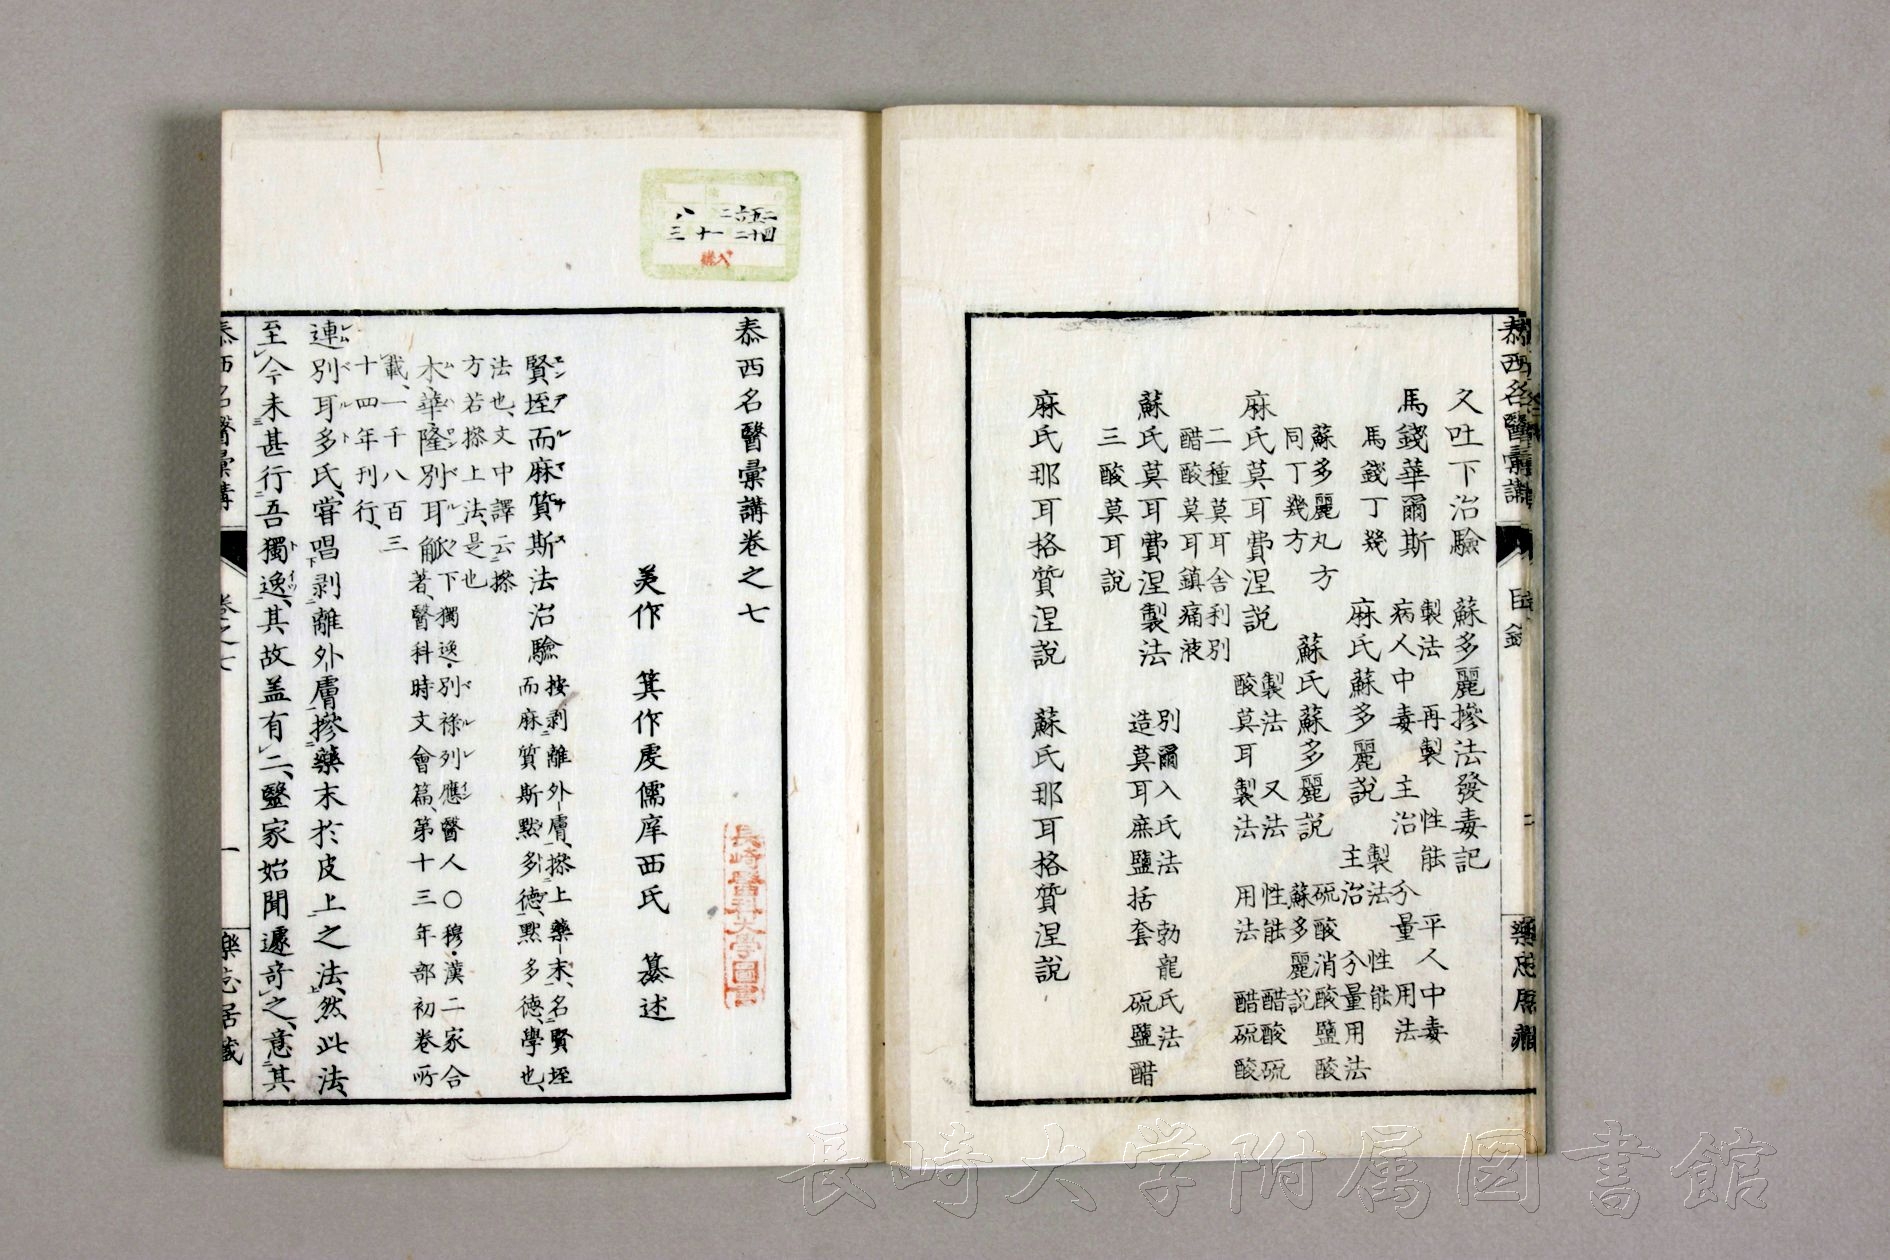 泰西名醫彙講
目錄
二
又吐下治驗　蘇多麗摻法發毒記
馬錢華爾斯
製法　再製　性能　平人中毒
病人中毒　主治　分量　用法
馬錢丁幾
麻氏蘇多麗説
製法　性能
主治　分量用法
蘇多麗丸方
同丁幾方
蘇氏蘇多麗説
硫酸消酸鹽酸
蘇多麗説
麻氏莫耳費涅説
製法　又法　性能　醋酸硫
酸莫耳製法　用法　醋硫酸
二種莫耳舍利別
醋酸莫耳鎮痛液
蘇氏莫耳費涅製法
別爾入氏法　勃龍氏法
造莫耳庶鹽括套　硫鹽醋
三酸莫耳説
麻氏那耳格質涅説　蘇氏那耳格質涅説
八　二六五二
三　十一　二十四
購入
泰西名醫彙講卷之七
美作　箕作虔儒庠西氏　纂述
長崎醫科大學圖書
賢垤而麻質斯法治驗
按剥離外膚摻上藥末、名賢垤
而麻質斯默多德、默多德、學也、
法也、文中譯云摻
方若摻上法、是也
木華隆別耳觚
下獨逸別祿列應醫人〇穆漢二家合
著、醫科時文會篇、第十三年部初卷所
載、一千八百三
十四年刊行、
連別耳多氏、嘗唱剥離外膚摻藥末於皮上之法、然此法、
至今未甚行吾獨逸、其故盖有二、醫家始聞遽奇之、意其
泰西名醫彙講
卷之七
一
樂志居藏
長崎大学附属図書館